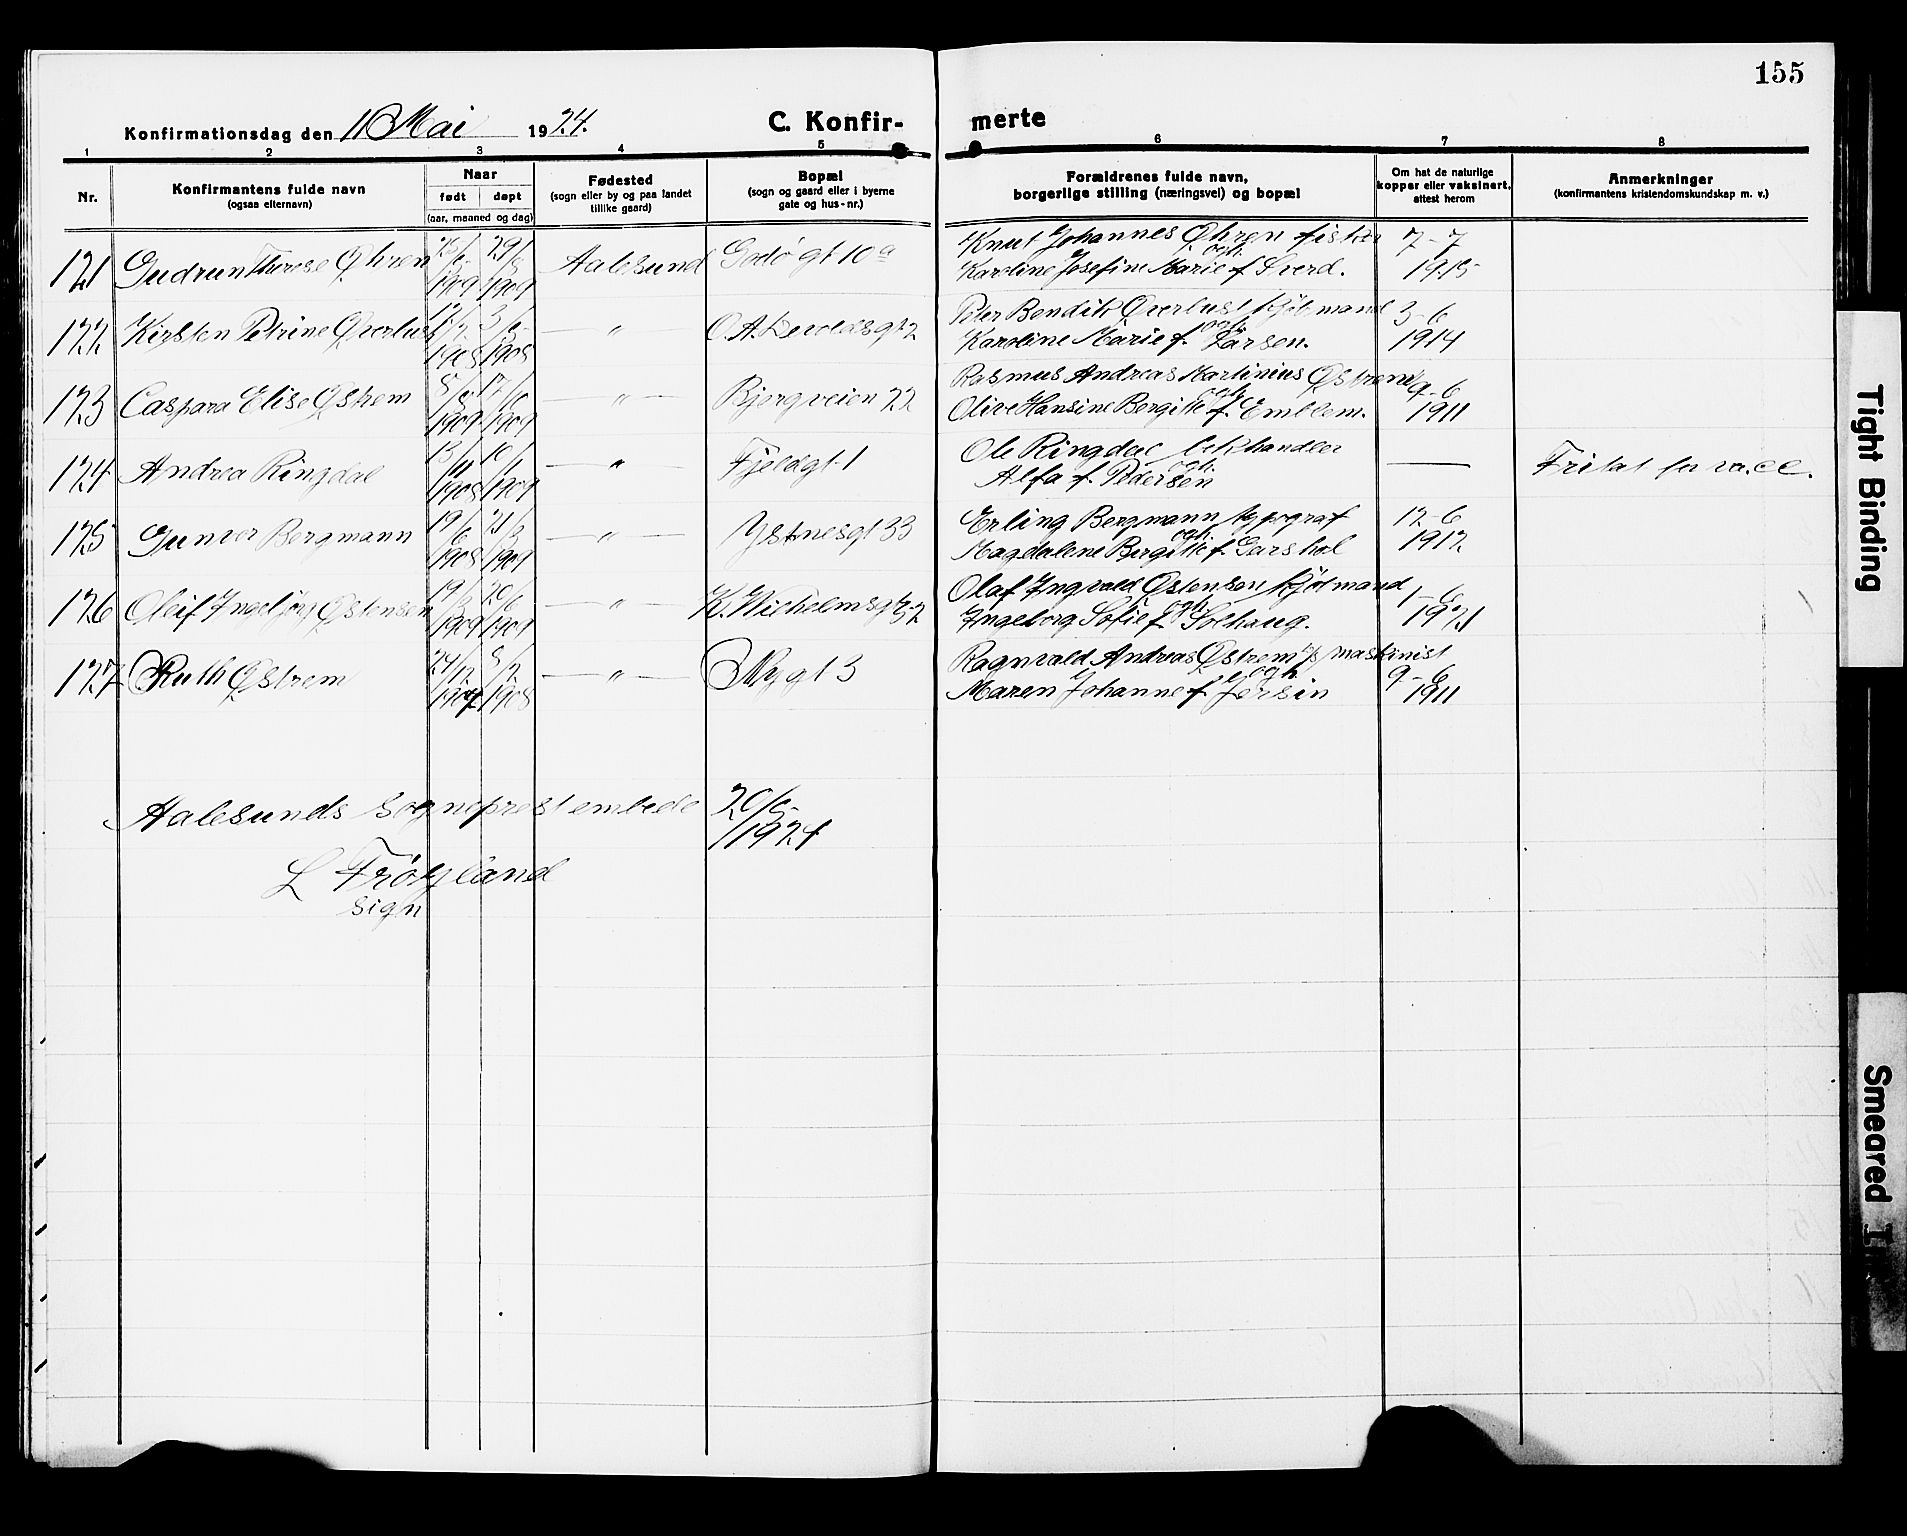 155
Konfirmationsdag den 11 Mai 1924.
C. Konfir-merte
1 2 3 4 5 6 7 8
Nr.
Konfirmantens fulde navn
(ogsaa efternavn)
Naar
født døpt
(aar, maaned og dag)
Fødested
(sogn eller by og paa landet
tillike gaard)
Bopæl
(sogn og gaard eller i byerne
gate og hus-nr.)
Forældrenes fulde navn,
borgerlige stilling (næringsvei) og bopæl
Om hat de naturlige
kopper eller vaksinert,
attest herom
Anmerkninger
(konfirmantens kristendomskundskap m. v.)
121 Gudrun Therese Øhren 1909 29/6 1909 Aalesund Godøgt 10a Knut Johannes Øhren fisker 7-7
ogh.
Karoline Josefine Marie f. 1915
122 Kirsten Petrine 1908 1908 — " — O. A. Devoldsgt 2 Peter Bendik kjøbmand 3-6
ogh.
Karoline Marie f. Larsen. 1914
123 Caspara Elise Østrem 1909 1909 — " — Bjergveien 22 Rasmus Andreas Martinius Østrem 9-6
ogh.
Olive Hansine Bergitte f. Emblem. 1911
124 Andrea Ringdal 1908 1909 — " — Fjeldgt. 1 Ole Ringdal — Fritat for vacc.
ogh.
Alfa f. Pedersen
125 Gunvor Bergmann 19/6 1908 21/3 1909 — " — Ystnesgt 33 Erling Bergmann typograf 12-6
ogh.
Magdalene Bergitte f. Garshol 1912.
126 Oleif Ingebjørg Østensen 19/3 1909 20/6 1909 — " — K. Wilhelmsgt 32 Olaf Ingvald Østensen kjøbmand 1-6
ogh.
Ingeborg Sofie f. Solhaug. 1921
127 Ruth Østrem 24/12 1907 8/2 1908 — " — Nygt 3 Ragnvald Andreas Østrem maskinist
ogh. 9-6
Maren Johanne f. 1911
Aalesunds sogneprestembede 20/6-1924
L Frøyland
sign
Tight Binding
Smeared